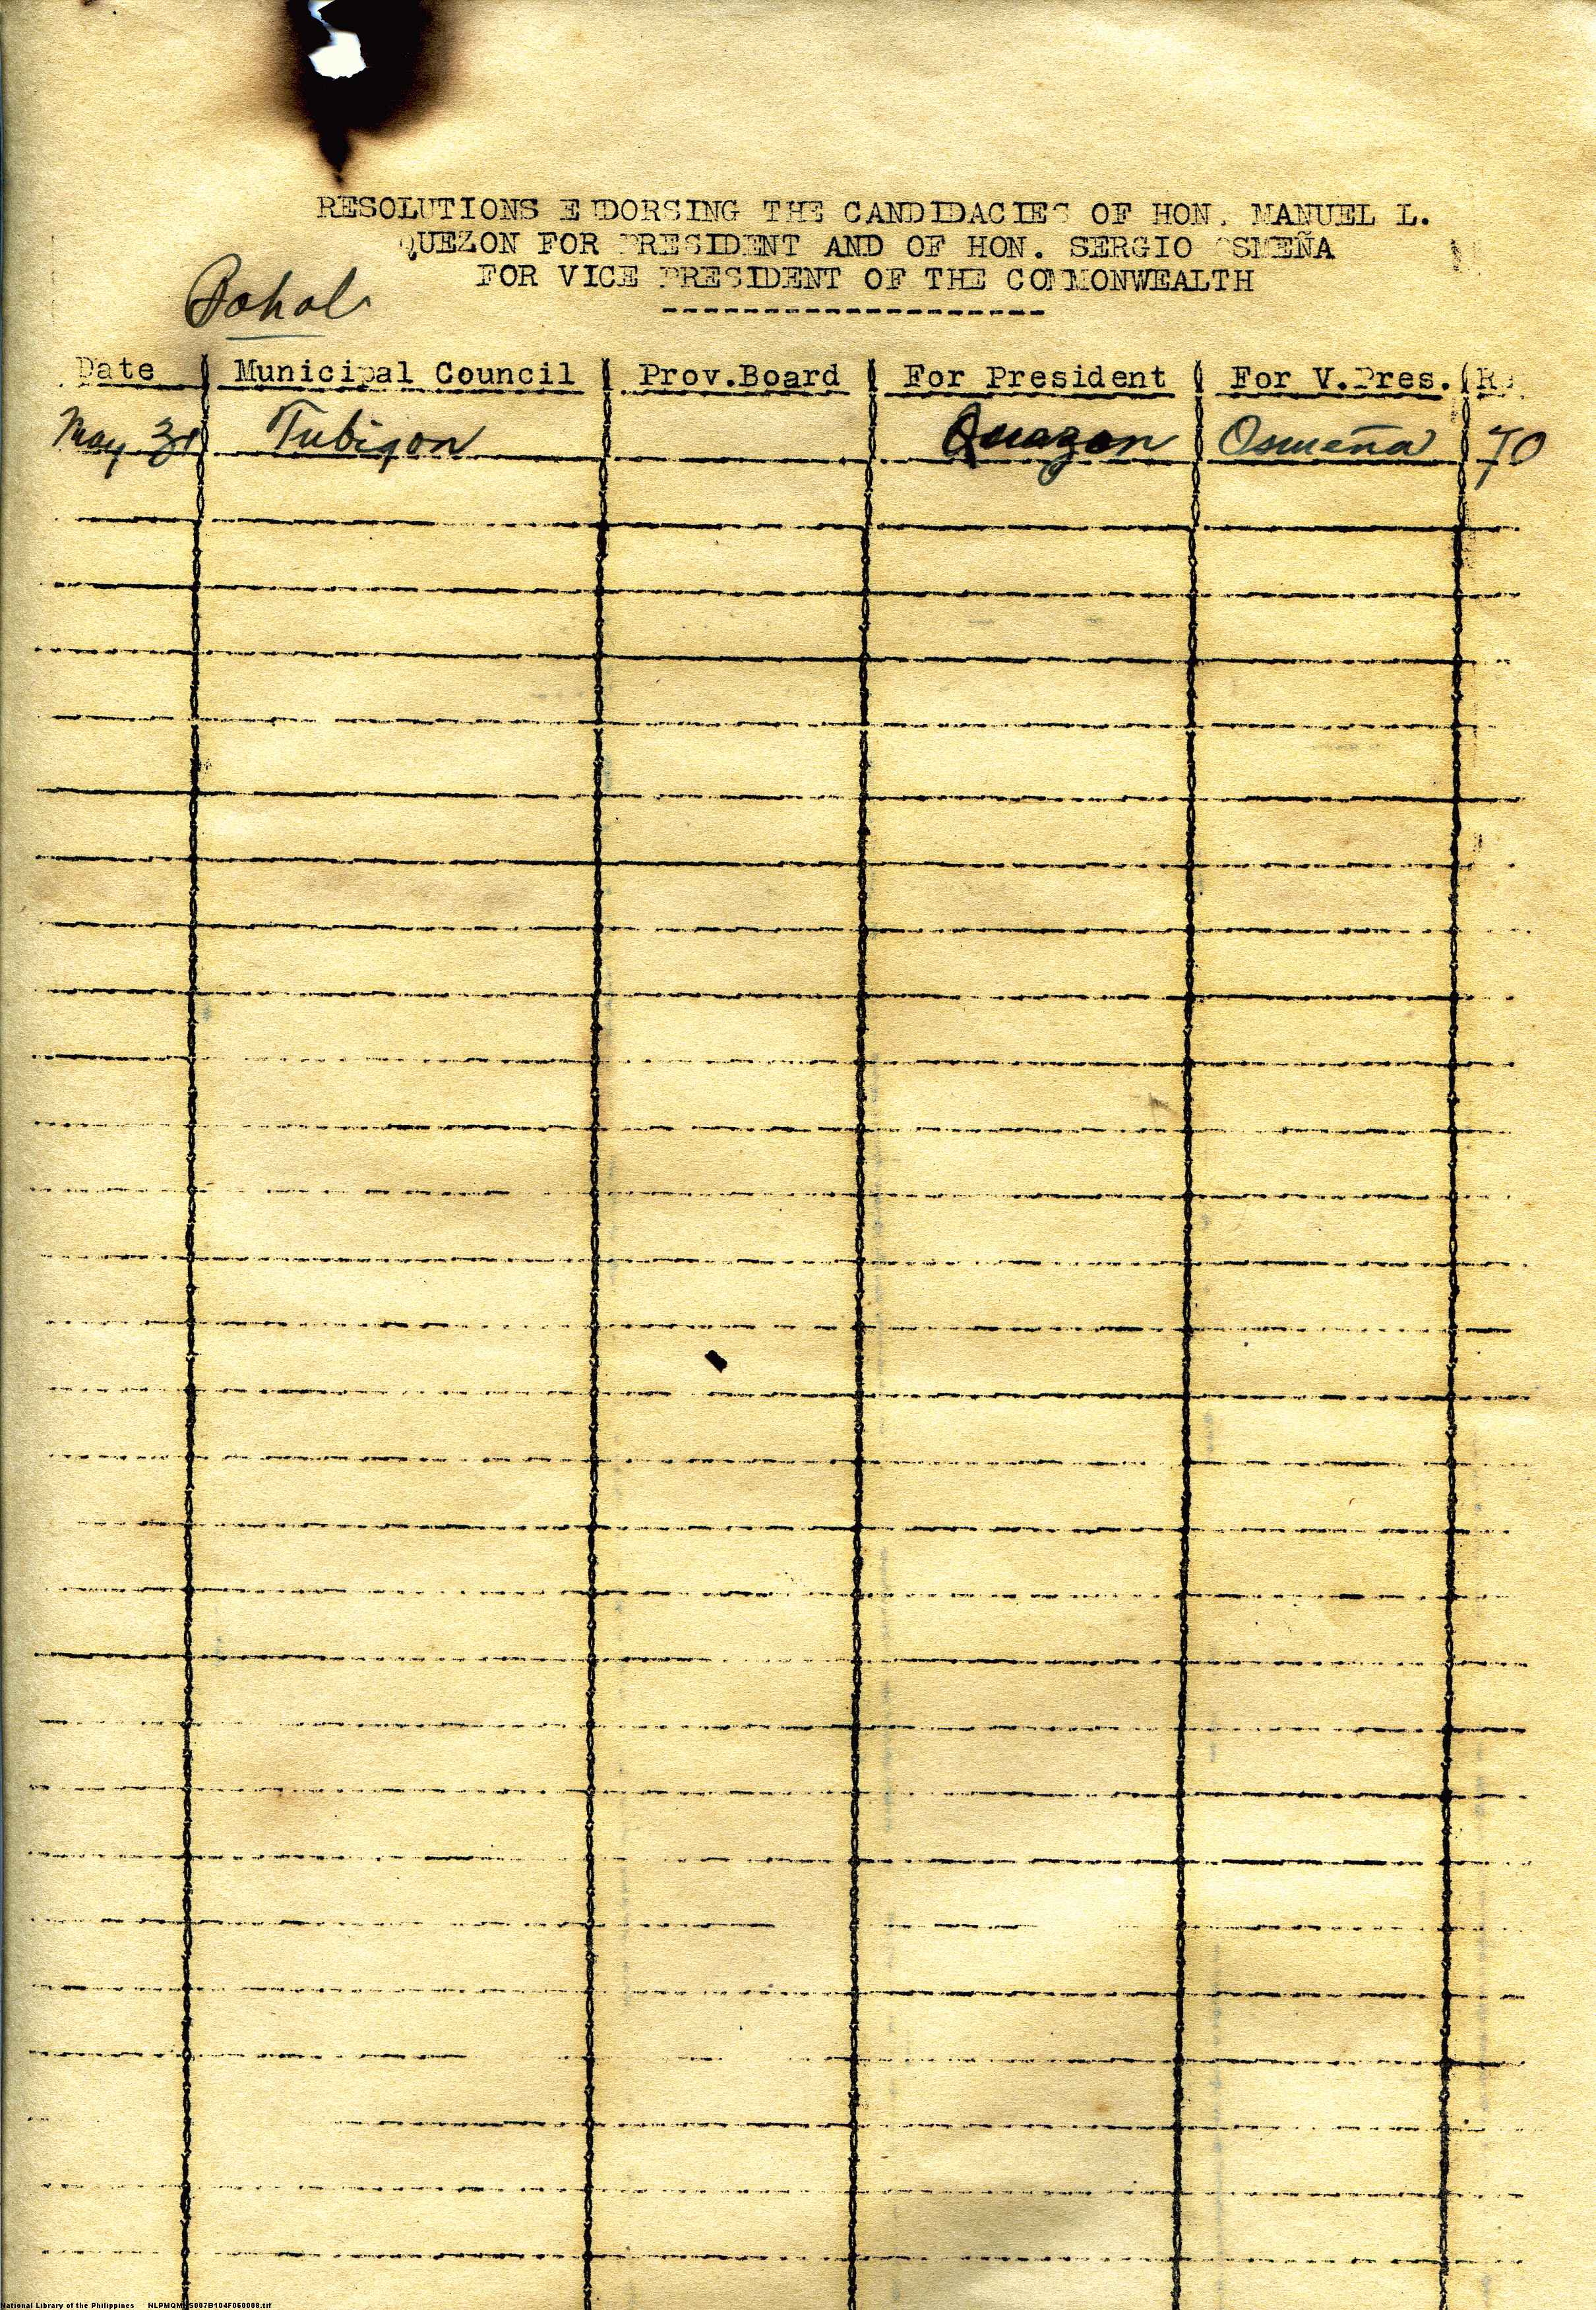 RESOLUTIONS E DORSING THE CANDIDACIES OF HON. MANUEL L.
QUEZON FOR PRESIDENT AND OF HON. SERGIO OSMEÑA
FOR VICE PRESIDENT OF THE COMMONWEALTH
Bohol
Date Municipal Council Prov.Board For President For V.Pres.
May Tubigon Quezon Osmeña 70
National Library of the Philippines NLPMQM